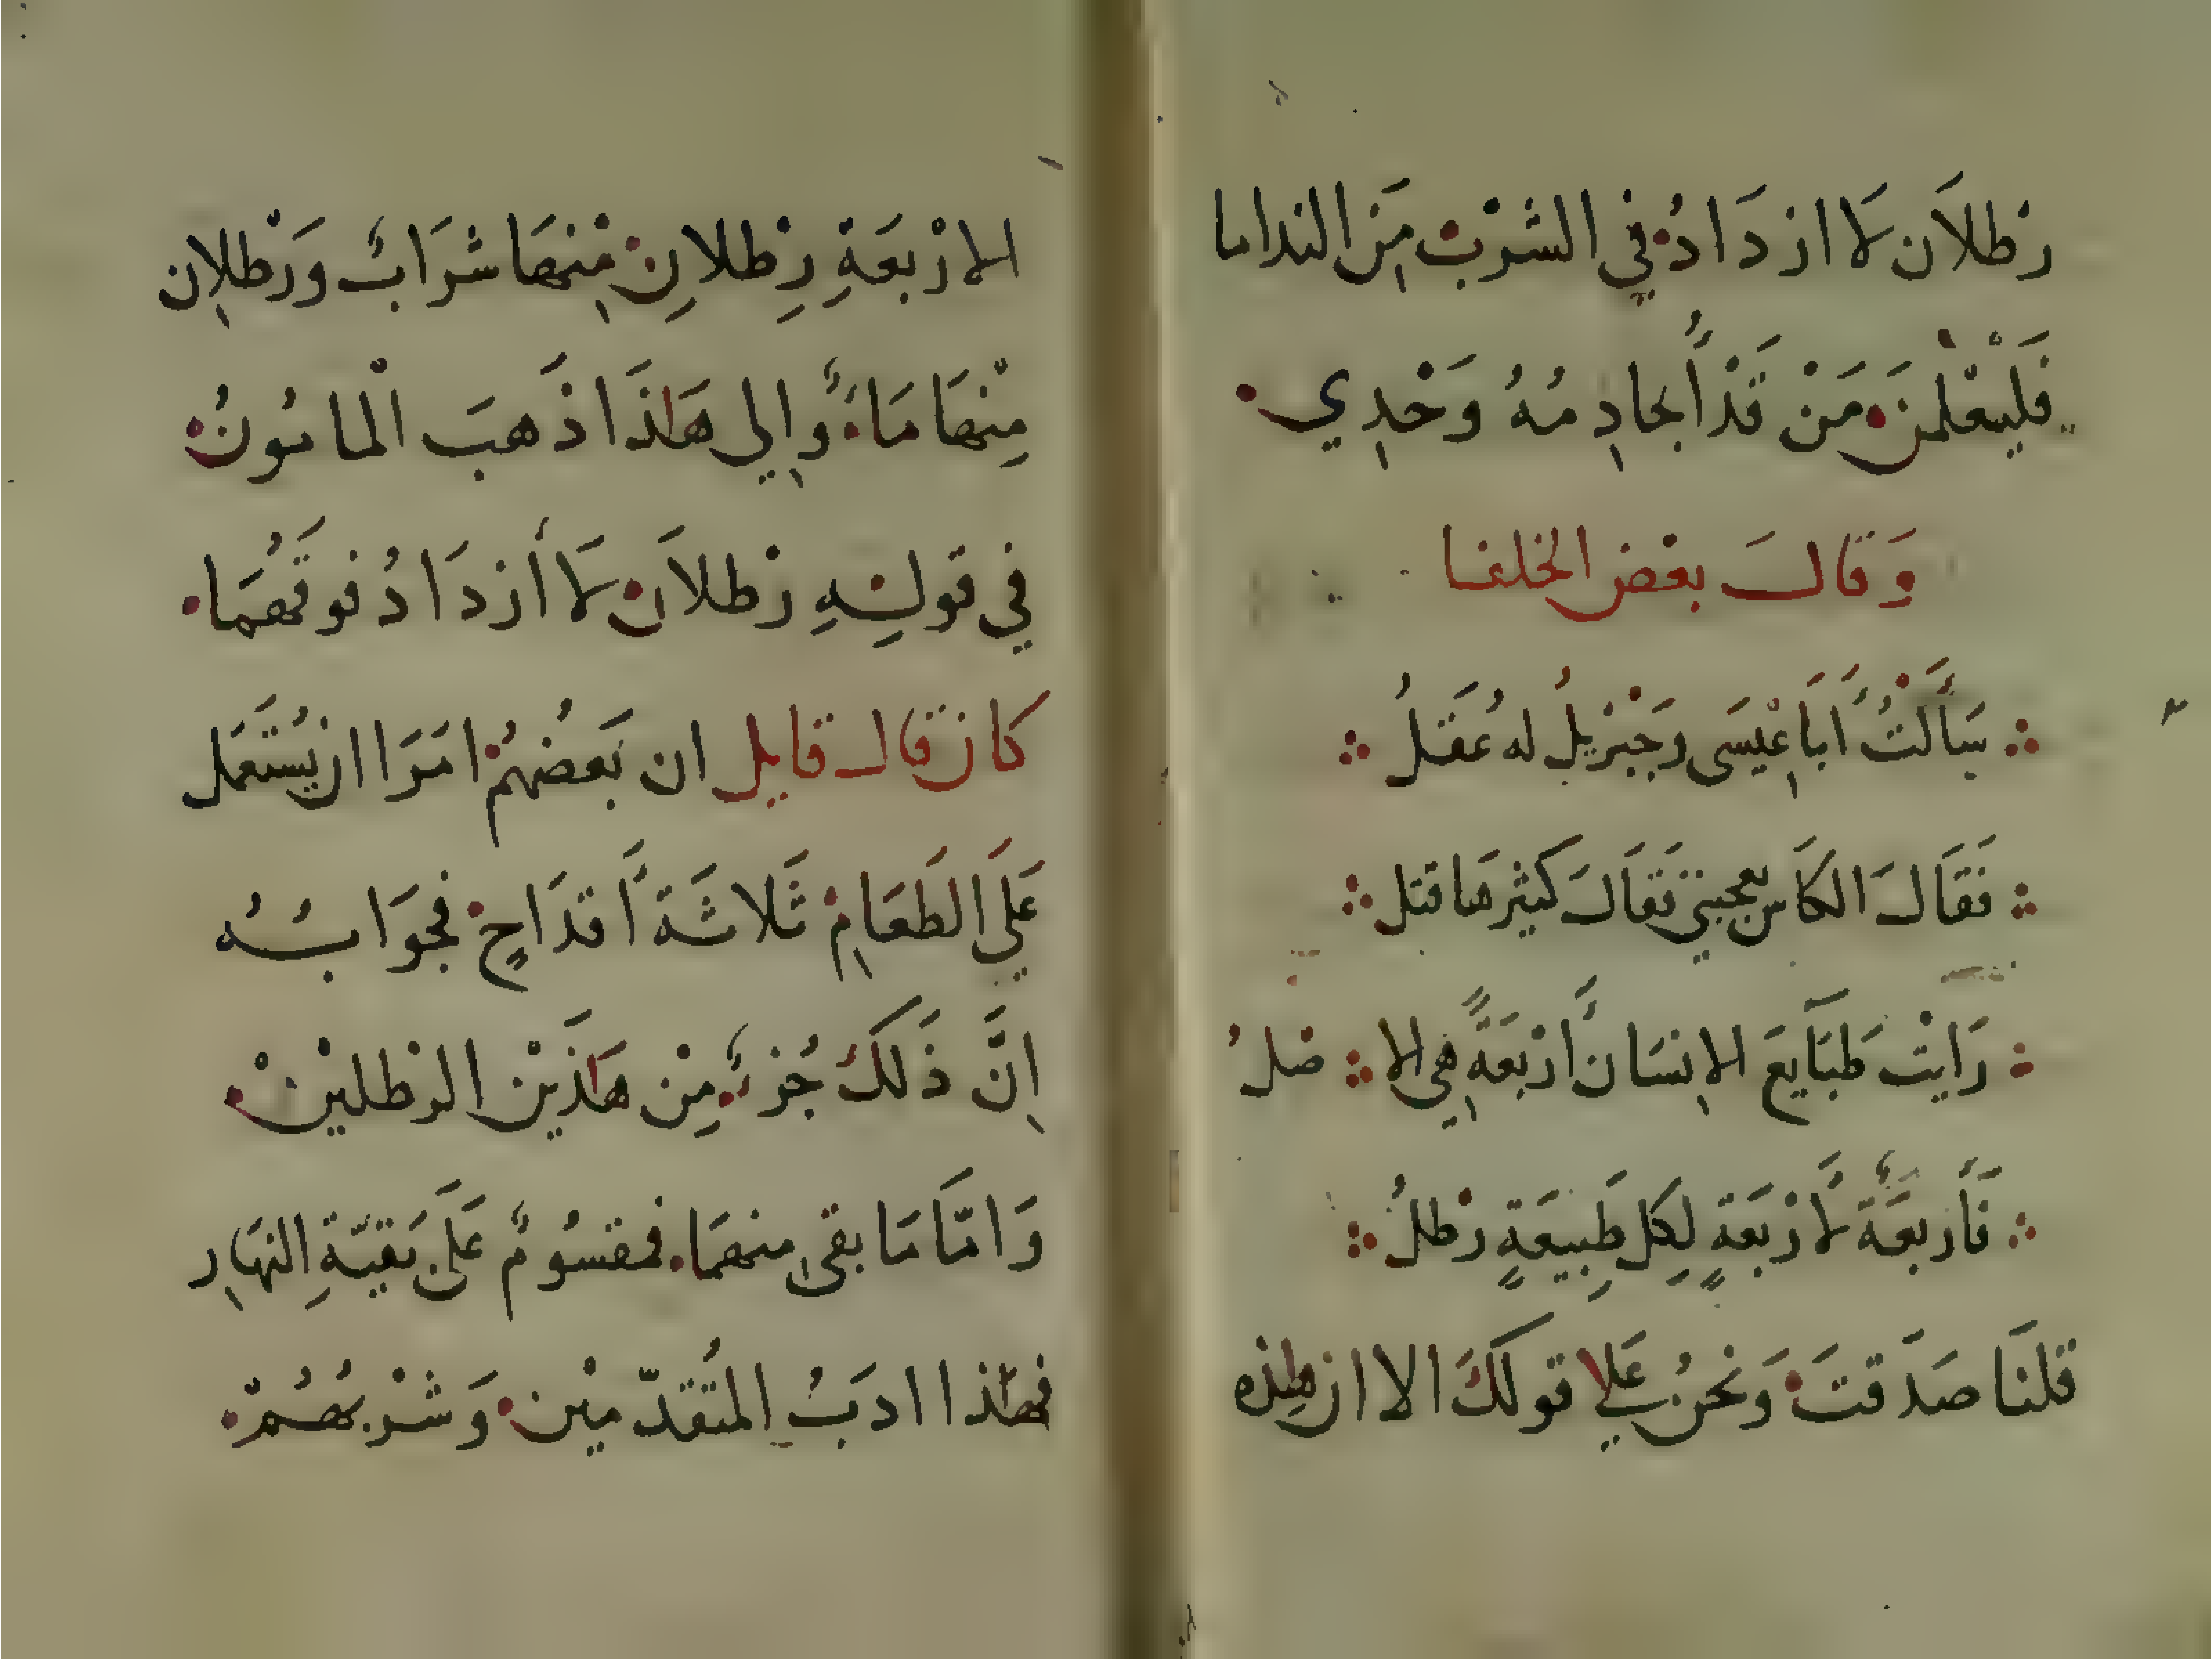 رَطلَان لَا ازدَادُ في الشرْب مِنَ الندامـا
فَليعْلمن مَنْ قَدْ أُجادِمُهُ وَحْدِي
وَقالَ بعْض الخلفـا
سَأَلْتُ أَبَا عِيْسَى وَجِبْرِيلُ له عَقلُ
فَقَالَ الكَاس يعجبني فَقَالَ كَثيْرهَا قتل
رَايْت طَبَآيعَ الانسَان أَرْبعَةً هِي الاصلُ
فَأَربعَةٌ لأَرْبَعَةٍ لِكلِ طَبِيعَةٍ رَطلُ
قلنَا صَدَقتَ وَنَحْنُ عَلي قولكَ الا ان هٰذه
الارْبَعَةِ رِطلانِ مِنْهَا شَرَابٌ وَرَطْلِان
مِنْهَا مَاءٌ وإِلي هَاذَا ذَهَبَ الْمامُونُ
في قولِهِ رَطلَان لَا أَزدَادُ فوقَهُمَا
كان قَال قايل ان بَعضُهُمْ امَرَا ان يُسْتَعمَل
عَلَي الطَعَامِ ثَلاثَةَ أَقدَاحٍ فجوَابُـهُ
اِنَّ ذَلكَ جُزءٌ مِنْ هَاذَيْن الرَطلينْ
وَامَّا مَا بقى مِنهمَا فمقسُومٌ عَلَى بَقيّةِ النهَارِ
فهٰذا ادَبُ المُتقدّمِيْن وَشُرْبُهُمْ